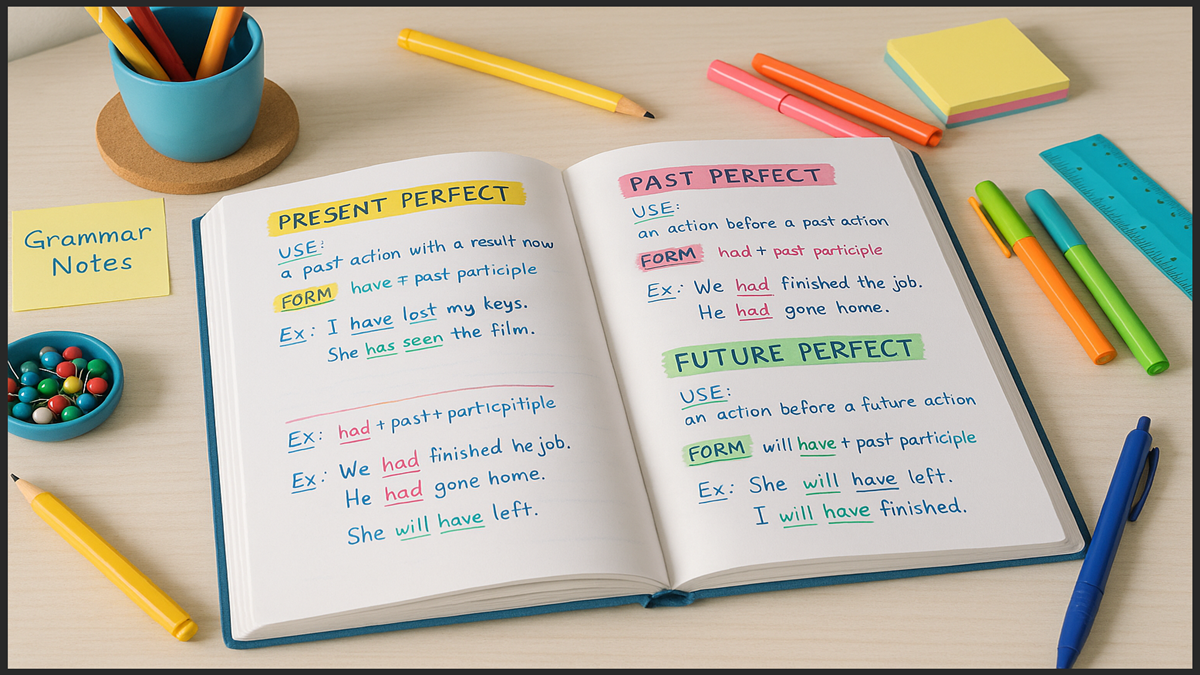 Grammar
Notes
PRESENT PERFECT
USE:
a past action with a result now
FORM have ∓ past participle
Ex: I have lost my keys.
She has seen the film.
Ex: had + past+ partıcpitiple
Ex: We had finished he job.
He had gone home.
She will have left.
PAST PERFECT
USE:
an action before a past action
FORM had + past participle
Ex: We had finished the job.
He had gone home.
FUTURE PERFECT
USE:
an action before a future action
FORM will have + past participle
Ex: She will have left.
I will have finished.